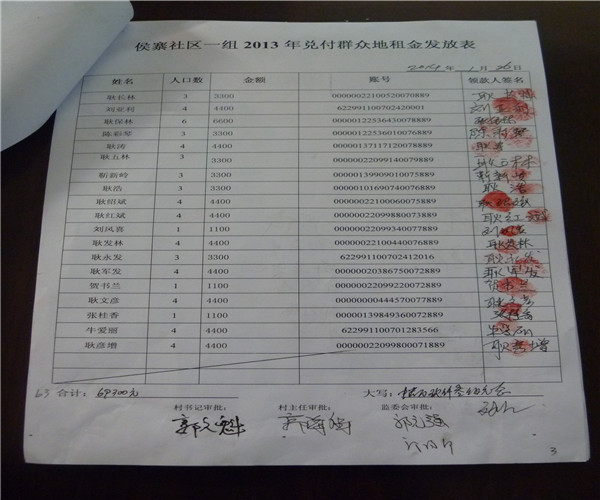 侯寨社区一组 2013 年兑付群众地租金发放表
2014 年 1 月 26 日
姓名 人口数 金额 账号 领款人签名
耿长林 3 3300 00000022100520070889
刘亚利 4 4400 622991100702420001
耿保林 6 6600 00000122536430078889
陈彩琴 3 3300 00000122536010076889
耿涛 4 4400 00000137117120078889 耿涛
耿五林 3 3300 00000022099140079889 耿五林
靳新岭 3 3300 00000139909010075889 靳新岭
耿浩 3 3300 00000101690740076889 耿浩
耿绍斌 4 4400 00000022100060075889
耿红斌 4 4400 00000022099880073889 耿红斌
刘风喜 1 1100 00000022099340077889
耿发林 4 4400 00000022100440076889 耿发林
耿永发 3 3300 622991100702412016 耿永发
耿军发 4 4400 00000020386750072889 耿军发
贺书兰 1 1100 00000022099220072889 贺书兰
耿文彦 4 4400 00000000444570077889
张桂香 1 1100 00000139849360072889
牛爱丽 4 4400 622991100701283566
耿彦增 4 4400 00000022099800071889 耿彦增
63 合计： 69300元 大写：
村书记审批： 村主任审批： 监委会审批：
3